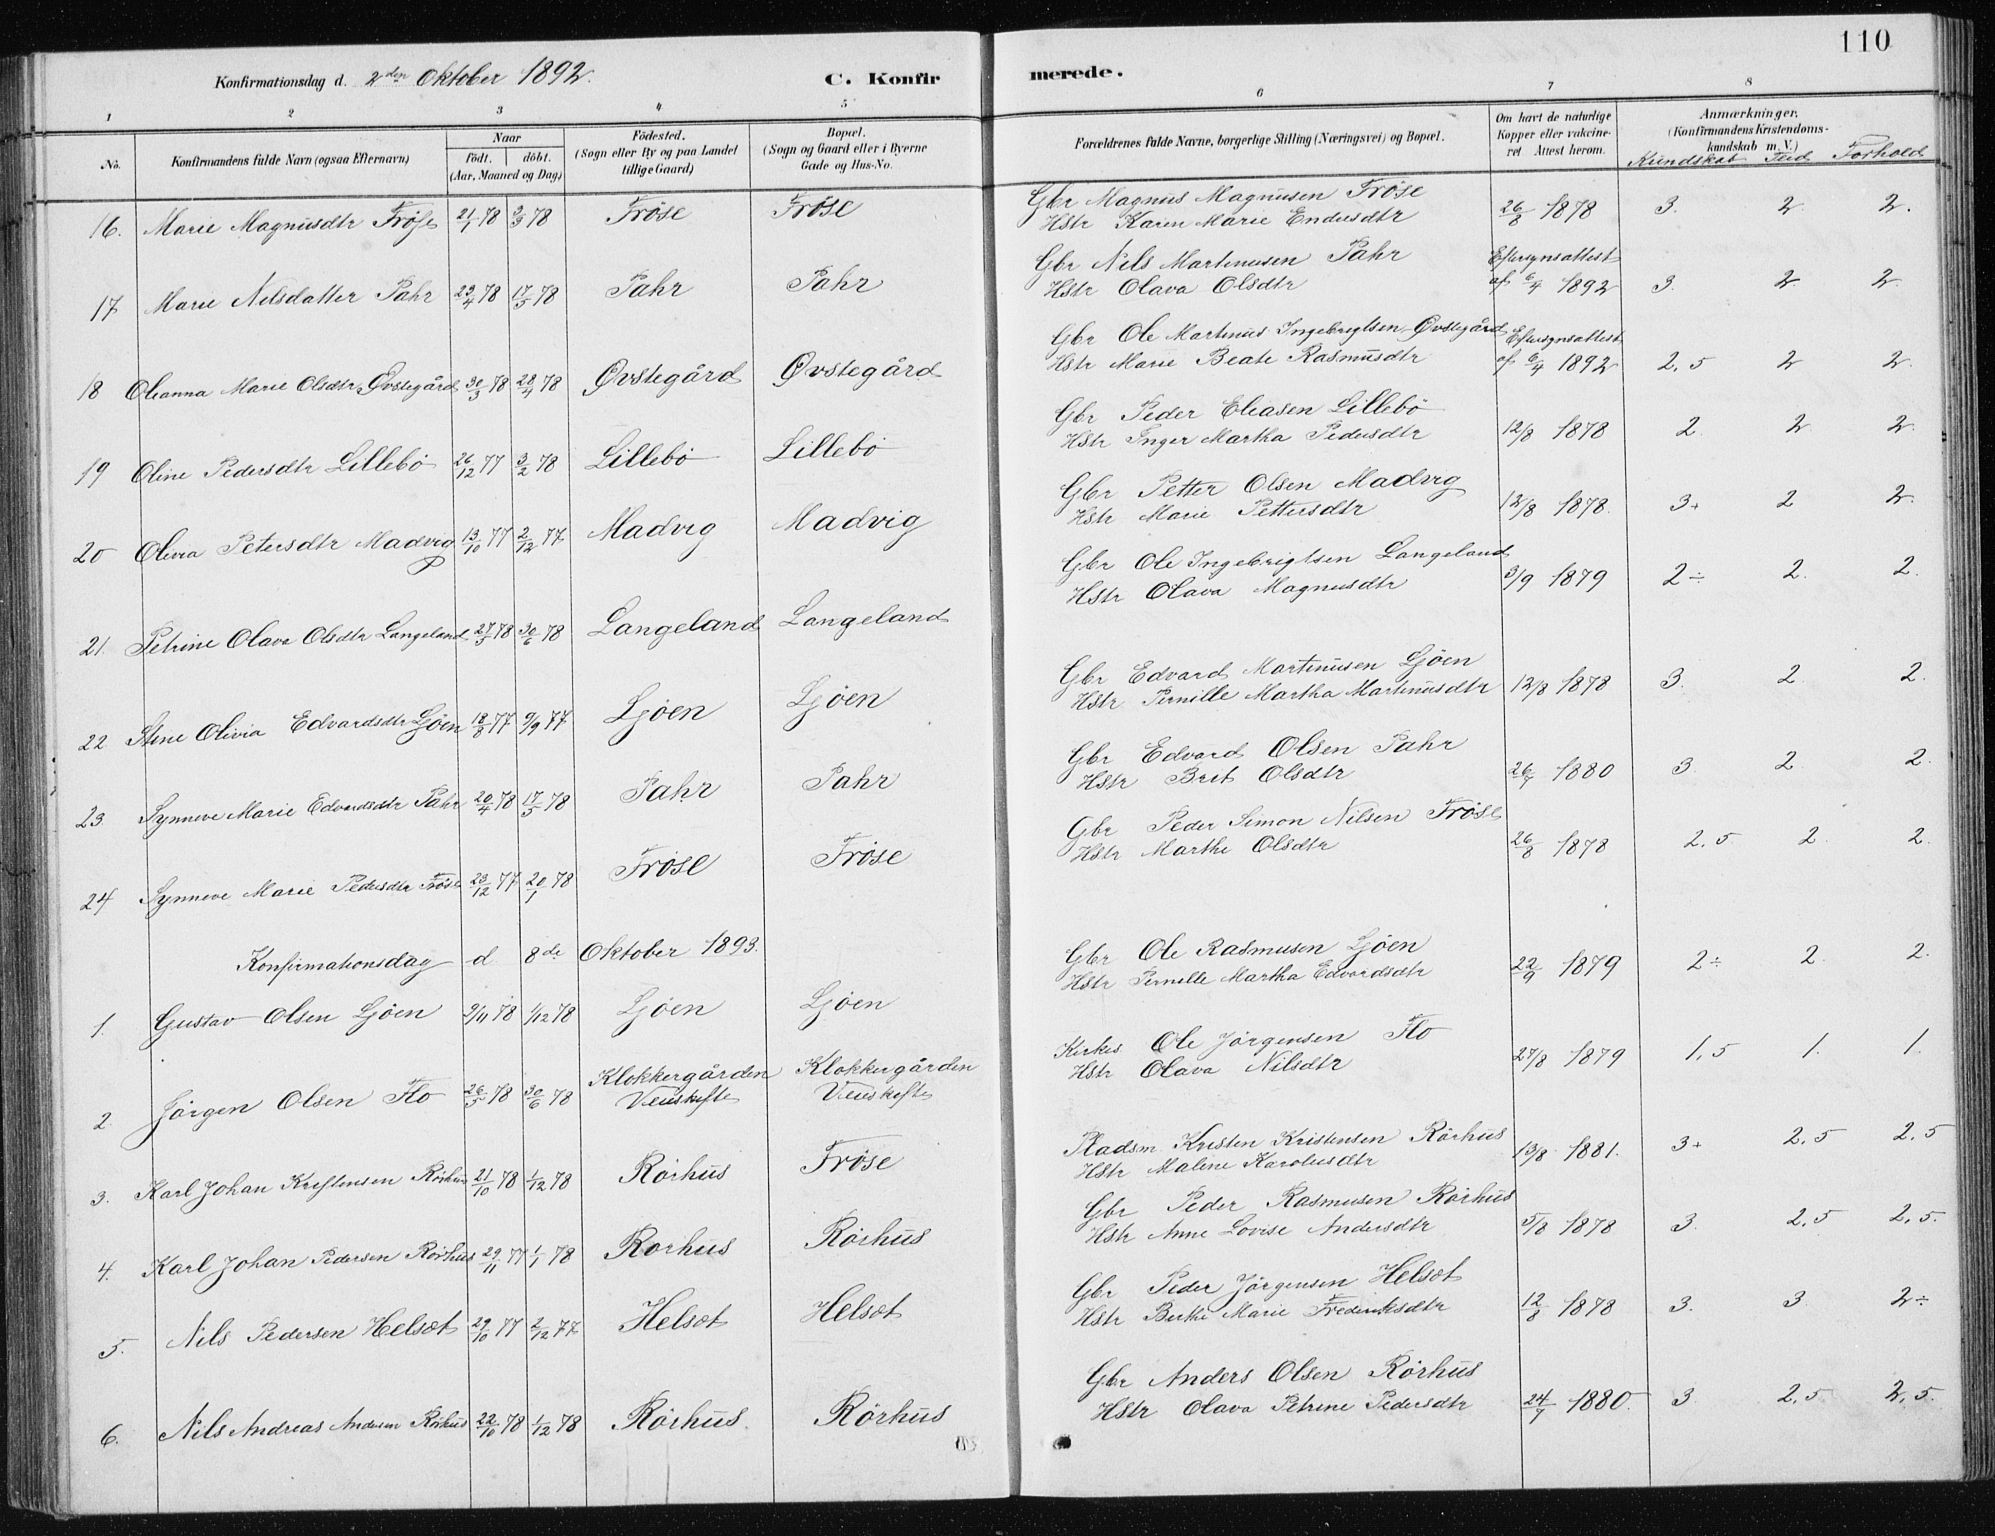 110
Konfirmationsdag d. 2den Oktober 1892.
C. Konfir
merede.
1 2 3 4 5 6 7 8
No. Konfirmandens fulde Navn (ogsaa Efternavn) Naar Født. døbt. (Aar, Maaned og Dag) Födested. (Sogn eller By og paa Landet tillige Gaard) Bopæl. (Sogn og Gaard eller i Byerne Gade og Hus-No. Forældrenes fulde Navne, borgerlige Stilling (Næringsvei) og Bopæl. Om havt de naturlige Kopper eller vakcineret. Attest herom. Anmærkninger. (Konfirmandens Kristendomskundskab m. V.) Kundskab Flid Forhold
16. Marie Magnusdtr Fröse 21/1 78 3/3 78 Fröse Fröse Gbr Magnus Magnusen Fröse 26/8 1878 3. 2. 2.
Hstr Karen Marie Endresdtr
17 Marie Nilsdatter Pahr 23/4 78 17/5 78 Pahr Pahr Gbr Nils Martinusen Pahr Eftersynsattest
Hstr Olava Olsdtr af 6/4 1892 3. 2. 2.
18 Oleanna Marie Olsdtr Øvstegård 30/3 78 28/4 78 Øvstegård Øvstegård Gbr Ole Martinus Ingebrigtsen Øvstegård Eftersynsattest
Hstr Marie Beate Rasmusdtr af 6/4 1892 2,5 2 2.
19 Oline Pedersdtr Lillebö 26/12 77 3/2 78 Lillebö Lillebö Gbr Peder Eliasen Lillebö
Hstr Inger Martha Pedersdtr 12/8 1878 2. 2. 2.
20 Olivia Petersdtr Madvig 13/10 77 2/12 77 Madvig Madvig Gbr Petter Olsen Madvig
Hstr Marie Pettersdtr 12/8 1878. 3+ 2 2.
21. Petrine Olava Olsdtr Langeland 27/5 78 30/6 78 Langeland Langeland Gbr Ole Ingebrigtsen Langeland
Hstr Olava Magnusdtr 3/9 1879 2÷ 2. 2.
22 Stine Olivia Edvardsdtr Ljöen 18/8 77 9/9 77 Ljöen Ljöen Gbr Edvard Martinusen Ljöen
Hstr Pernille Martha Martinusdtr 12/8 1878 3. 2. 2.
23 Synneve Marie Edvardsdtr Pahr 20/4 78 17/5 78 Pahr Pahr Gbr Edvard Olsen Pahr
Hstr Brit Olsdtr 26/7 1880 3. 2. 2.
24 Synneve Marie Pedersdtr Fröse 23/12 77 20/1 78 Fröse Fröse Gbr Peder Simon Nilsen Fröse
Hstr Marthe Olsdtr 26/8 1878 2,5 2. 2.
Konfirmationsdag d 8de Oktober 1893.
1. Gustav Olsen Ljöen 9/11 78 1/12 78 Ljöen Ljöen Gbr Ole Rasmusen Ljöen
Hstr Pernille Martha Edvardsdtr 22/9 1879 2÷ 2. 2.
2. Jörgen Olsen Flo 26/5 78 30/6 78 Klokkergården Klokkergården Kirkes. Ole Jörgensen Flo
Hstr Olava Nilsdtr 27/8 1879 1,5 1. 1.
3. Karl Johan Kristensen Rörhus 21/10 78 1/12 78 Rörhus Fröse Pladsm Kristen Kristensen Rörhus
Hstr Maline Karolusdtr 13/8 1881. 3+ 2,5 2,5
4. Karl Johan Pedersen Rörhus 29/11 77 1/1 78 Rörhus Rörhus Gbr Peder Rasmusen Rörhus
Hstr Anne Lovise Andersdtr 5/8 1878 3. 2,5 2,5.
5. Nils Pedersen Helset 29/10 77 2/12 77 Helset Helset Gbr Peder Jörgensen Helset
Hstr Berthe Marie Frederiksdtr 12/8 1878 3. 3 2÷
6. Nils Andreas Andersen Rörhus 22/10 78 1/12 78 Rörhus Rörhus Gbr Anders Olsen Rörhus
Hstr Olava Petrine Pedersdtr 24/7 1880. 3. 2,5 2,5.